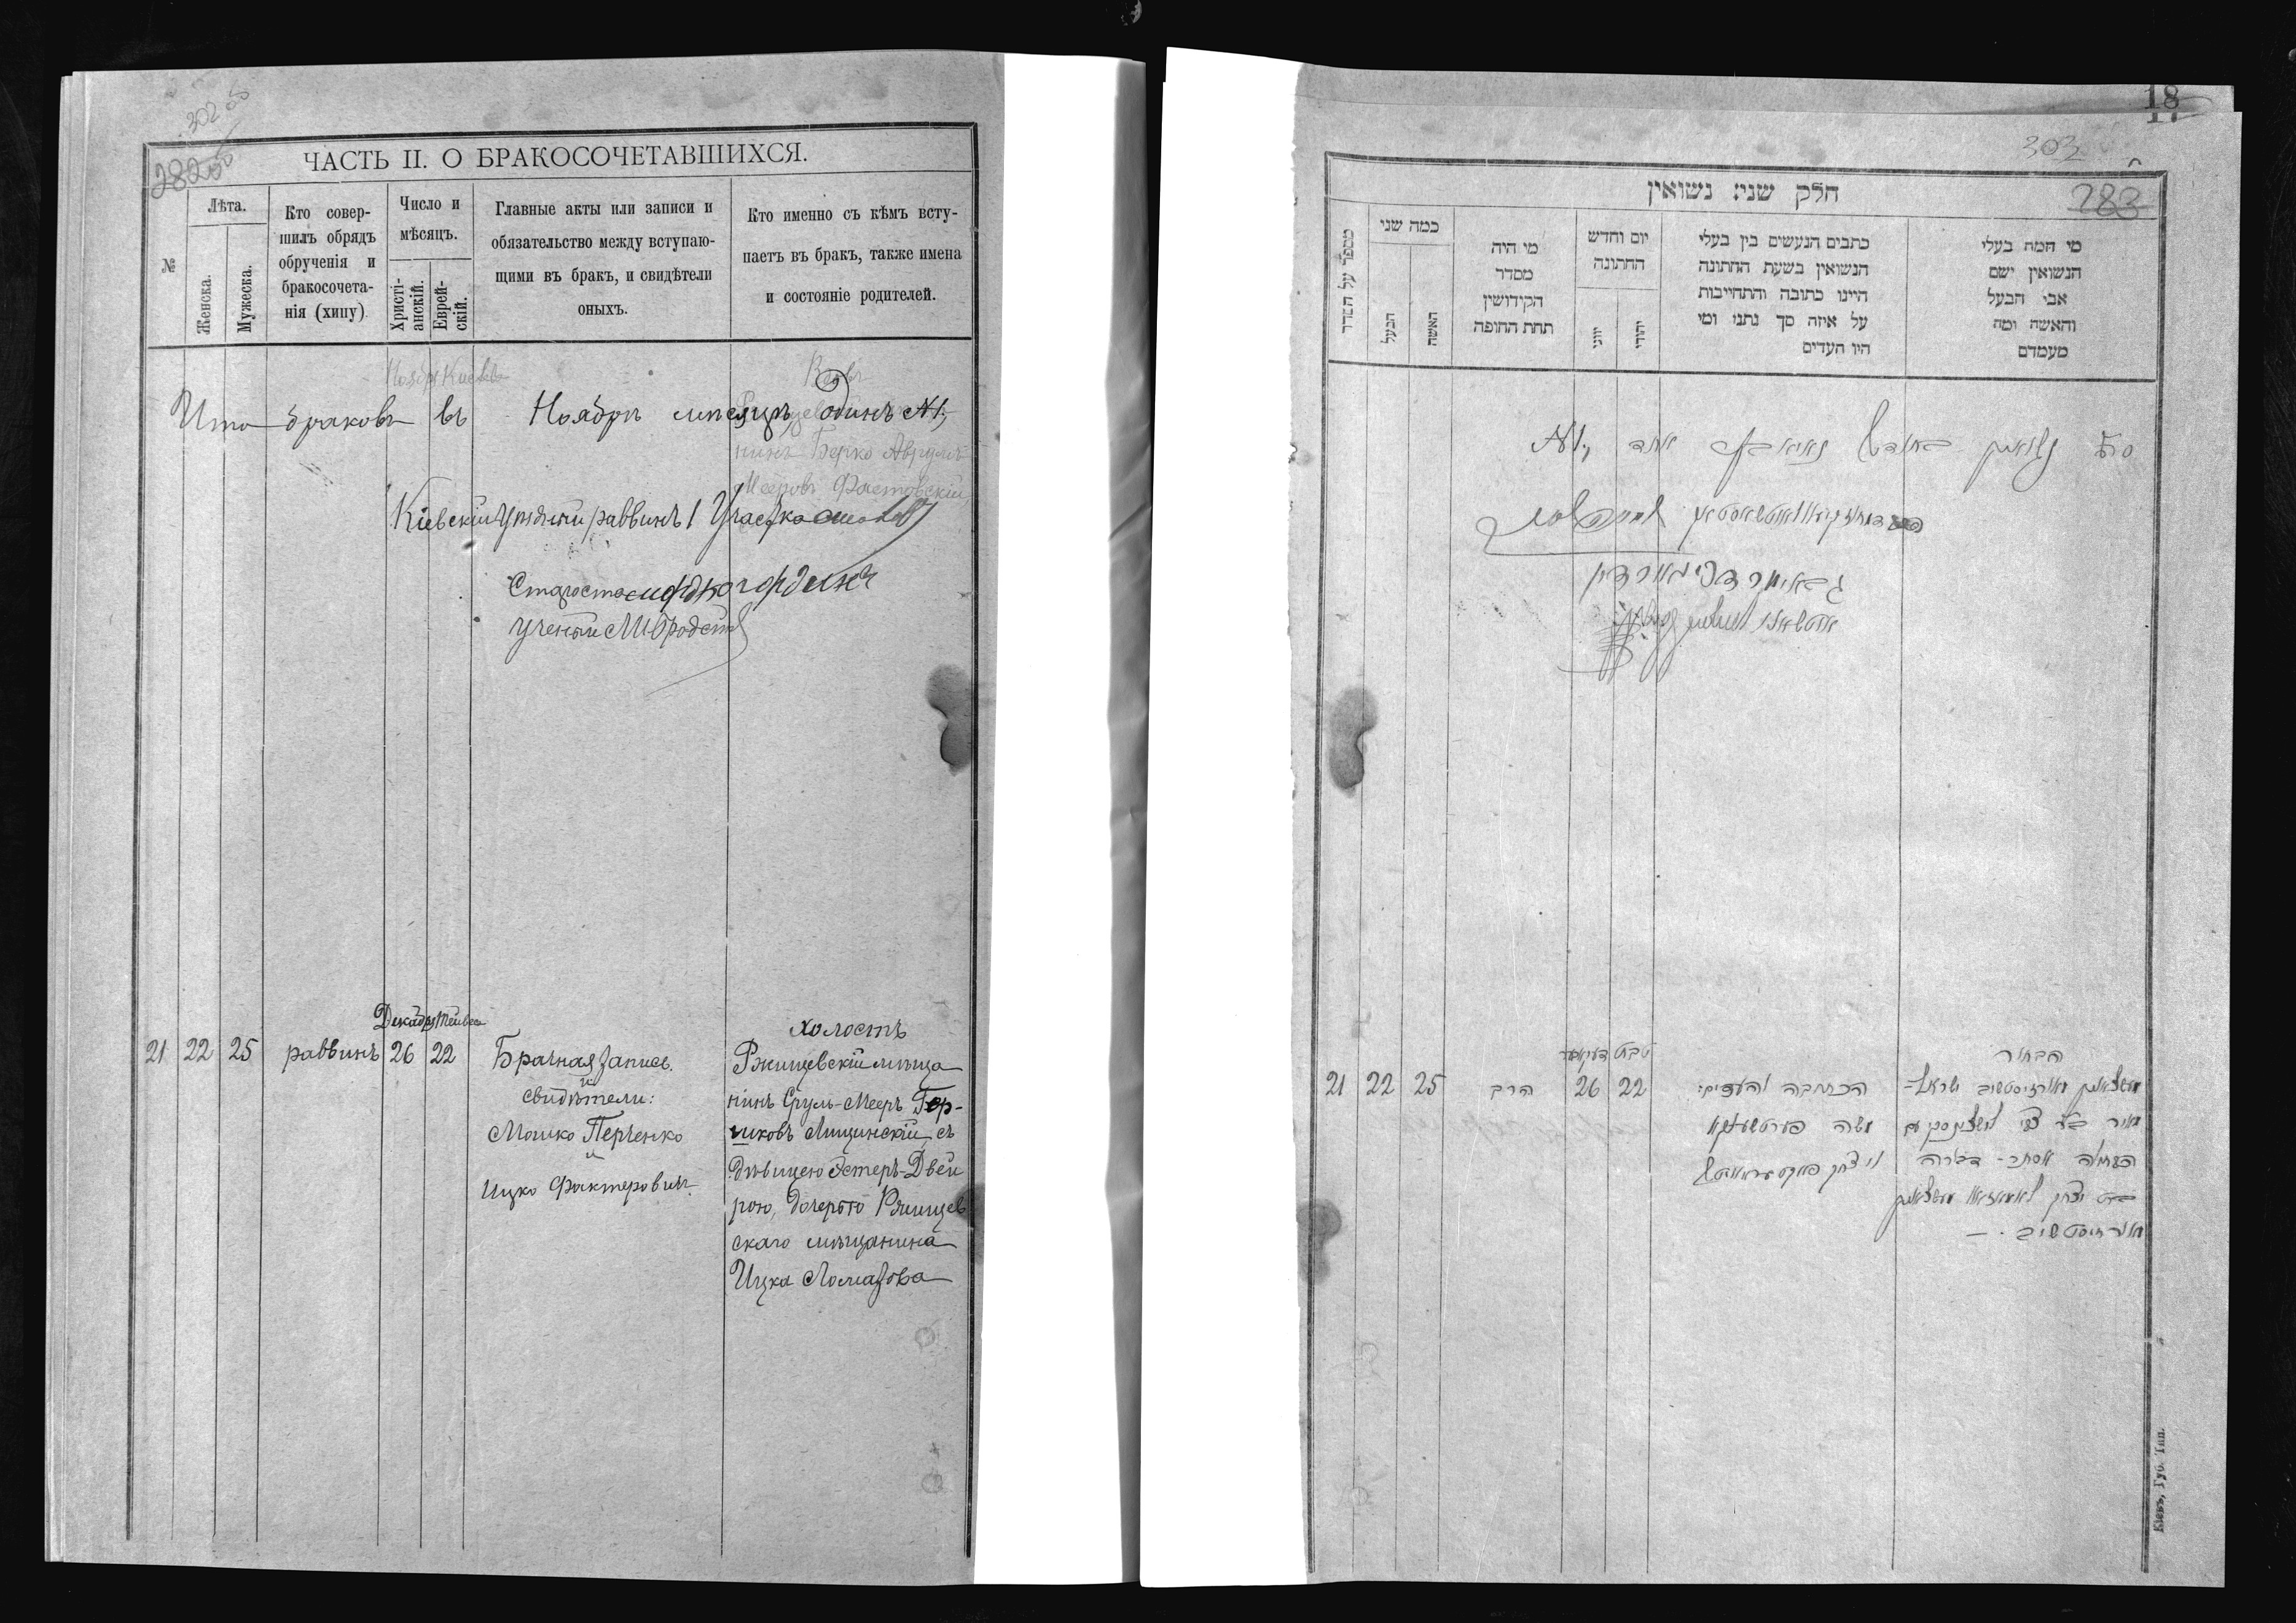 302 об
282 об
ЧАСТЬ II. О БРАКОСОЧЕТАВШИХСЯ.
№
Лѣта.
Женска.
Мужеска.
Кто совер-
шилъ обрядъ
обрученія и
бракосочета-
нія (хипу)
Число и
мѣсяцъ.
Христі-
анскій.
Еврей-
скій.
Главные акты или записи и
обязательство между вступаю-
щими въ бракъ, и свидѣтели
оныхъ.
Кто именно съ кѣмъ всту-
паетъ въ бракъ, также имена
и состояніе родителей.
Ноябрь Кислев
Итого браковъ въ Ноябрѣ мѣсяцѣ Одинъ №1,
нинъ Берко Аврумъ
Мееровъ Фастовскій
Кіевскій Уѣздный раввинъ 1 Участка
Староста
Ученый М Бродскій
Декабрь Тейвес
21 22 25 раввинъ 26 22
Брачная запись.
и
свидѣтели:
Мошко Перченко
и
Ицко Факторовичъ
холостъ
Ржищевскій мѣща
нинъ Сруль-Мееръ Гер-
шковъ Лищинскій, съ
дѣвицею Эстеръ-Двей
рою, дочерью Ржищев
скаго мѣщанина
Ицка Ломазова
18
17
303
283
חלק שני׃ נשואין
מספר על הסדר
כמה שני
הבעל
האשה
מי היה
מסדר
הקידושין
תחת החופה
יום וחדש
החתונה
יוני
יהודי
כתבים הנעשים בין בעלי
הנשואין בשעת החתונה
היינו כתובה והתחייבות
על איזה סך נתנו ומי
היו העדים
מי המה בעלי
הנשואין ושם
אבי הבעל
והאשה ומה
מעמדם
נשואין בחודש נאיאבר אחד №1,
21 22 25 הרב 26 22
הכתובה והעדים׃
משה פערטשענקא
ויצחק פאקטעראוויטש
הבחור
מעשצאנין מארזיסטשוב ישראל-
מאיר בן צבי לישצינסקי עם
הבתולה אסתר - דבורה
בת יצחק לאמאזאוו מעשצאנין
מארזיסטשוב. —
Кіевъ, Губ. Тип.